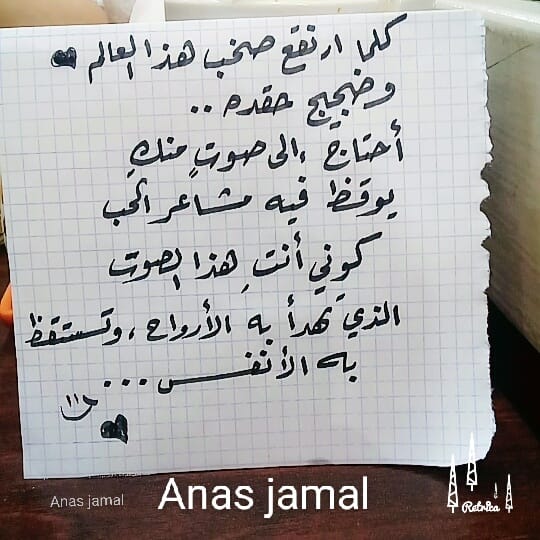 كلما ارتفع صخب هذا العالم
وضجيج حقده ..
أحتاج إلى صوتٍ منكِ
يوقظ فيه مشاعر الحب
كوني أنتِ هذا الصوت
الذي تهدأ به الأرواح، وتستقظ
به الأنفس ...
Anas jamal
Anas jamal
Retrica